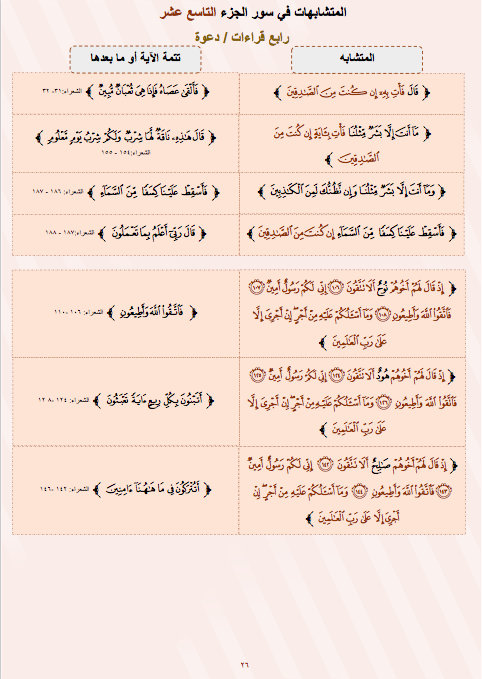 المتشابهات في سور الجزء التاسع عشر
رابع قراءات / دعوة
المتشابه
تتمة الآية أو ما بعدها
﴿ قَالَ فَأْتِ بِهِۦٓ إِن كُنتَ مِنَ الصَّـٰدِقِينَ ﴾
﴿ فَأَلْقَىٰ عَصَاهُ فَإِذَا هِىَ ثُعْبَانٌ مُّبِينٌ ﴾ الشعراء:٣١- ٣٢
﴿ مَآ أَنتَ إِلَّا بَشَرٌ مِّثْلُنَا فَأْتِ بِـَٔايَةٍ إِن كُنتَ مِنَ
الصَّـٰدِقِينَ ﴾
﴿ قَالَ هَـٰذِهِۦ نَاقَةٌ لَّهَا شِرْبٌ وَلَكُمْ شِرْبُ يَوْمٍ مَّعْلُومٍ ﴾
الشعراء:١٥٤ - ١٥٥
﴿ وَمَآ أَنتَ إِلَّا بَشَرٌ مِّثْلُنَا وَإِن نَّظُنُّكَ لَمِنَ الْكَـٰذِبِينَ ﴾
﴿ فَأَسْقِطْ عَلَيْنَا كِسَفًا مِّنَ السَّمَآءِ ﴾ الشعراء: ١٨٦ - ١٨٧
﴿ فَأَسْقِطْ عَلَيْنَا كِسَفًا مِّنَ السَّمَآءِ إِن كُنتَ مِنَ الصَّـٰدِقِينَ ﴾
﴿ قَالَ رَبِّىٓ أَعْلَمُ بِمَا تَعْمَلُونَ ﴾ الشعراء:١٨٧- ١٨٨
﴿ إِذْ قَالَ لَهُمْ أَخُوهُمْ نُوحٌ أَلَا تَتَّقُونَ ۝١٠٦ إِنِّى لَكُمْ رَسُولٌ أَمِينٌ ۝١٠٧
فَاتَّقُوا اللَّهَ وَأَطِيعُونِ ۝١٠٨ وَمَآ أَسْـَٔلُكُمْ عَلَيْهِ مِنْ أَجْرٍ إِنْ أَجْرِىَ إِلَّا
عَلَىٰ رَبِّ الْعَـٰلَمِينَ ﴾
﴿ فَاتَّقُوا اللَّهَ وَأَطِيعُونِ ﴾ الشعراء: ١٠٦ -١١٠
﴿ إِذْ قَالَ لَهُمْ أَخُوهُمْ هُودٌ أَلَا تَتَّقُونَ ۝١٢٤ إِنِّى لَكُمْ رَسُولٌ أَمِينٌ ۝١٢٥
فَاتَّقُوا اللَّهَ وَأَطِيعُونِ ۝١٢٦ وَمَآ أَسْـَٔلُكُمْ عَلَيْهِ مِنْ أَجْرٍ إِنْ أَجْرِىَ إِلَّا
عَلَىٰ رَبِّ الْعَـٰلَمِينَ ﴾
﴿ أَتَبْنُونَ بِكُلِّ رِيعٍ ءَايَةً تَعْبَثُونَ ﴾ الشعراء: ١٢٤ -١٢٨
﴿ إِذْ قَالَ لَهُمْ أَخُوهُمْ صَـٰلِحٌ أَلَا تَتَّقُونَ ۝١٤٢ إِنِّى لَكُمْ رَسُولٌ أَمِينٌ
۝١٤٣ فَاتَّقُوا اللَّهَ وَأَطِيعُونِ ۝١٤٤ وَمَآ أَسْـَٔلُكُمْ عَلَيْهِ مِنْ أَجْرٍ إِنْ
أَجْرِىَ إِلَّا عَلَىٰ رَبِّ الْعَـٰلَمِينَ ﴾
﴿ أَتُتْرَكُونَ فِى مَا هَـٰهُنَآ ءَامِنِينَ ﴾ الشعراء: ١٤٢ -١٤٦
٢٦